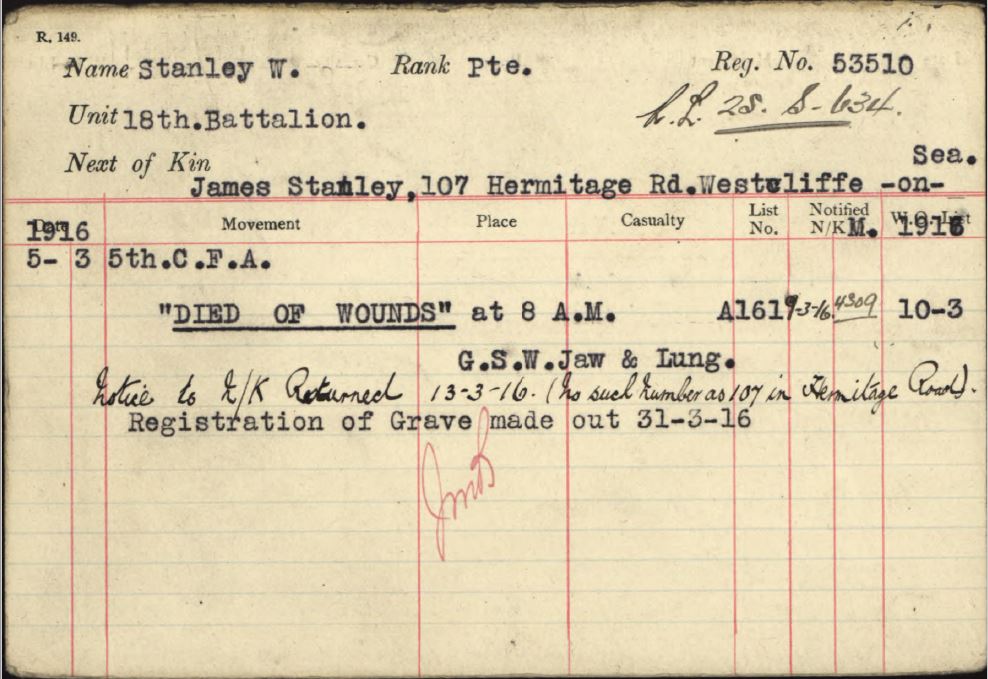 R. 149.
Name Stanley W. Rank Pte. Reg. No. 53510
Unit 18th.Battalion. 28. S-634.
Next of Kin Sea.
James Stanley,107 Hermitage Rd.Westcliffe -on-
1916 Movement Place Casualty List No. Notified N/K M. W.O. List 1916
5- 3 5th.C.F.A.
"DIED OF WOUNDS" at 8 A.M. A1619 9-3-16. 4309 10-3
G.S.W.Jaw & Lung.
Notice to N/K Returned 13-3-16. (No such number as 107 in Hermitage Road).
Registration of Grave made out 31-3-16